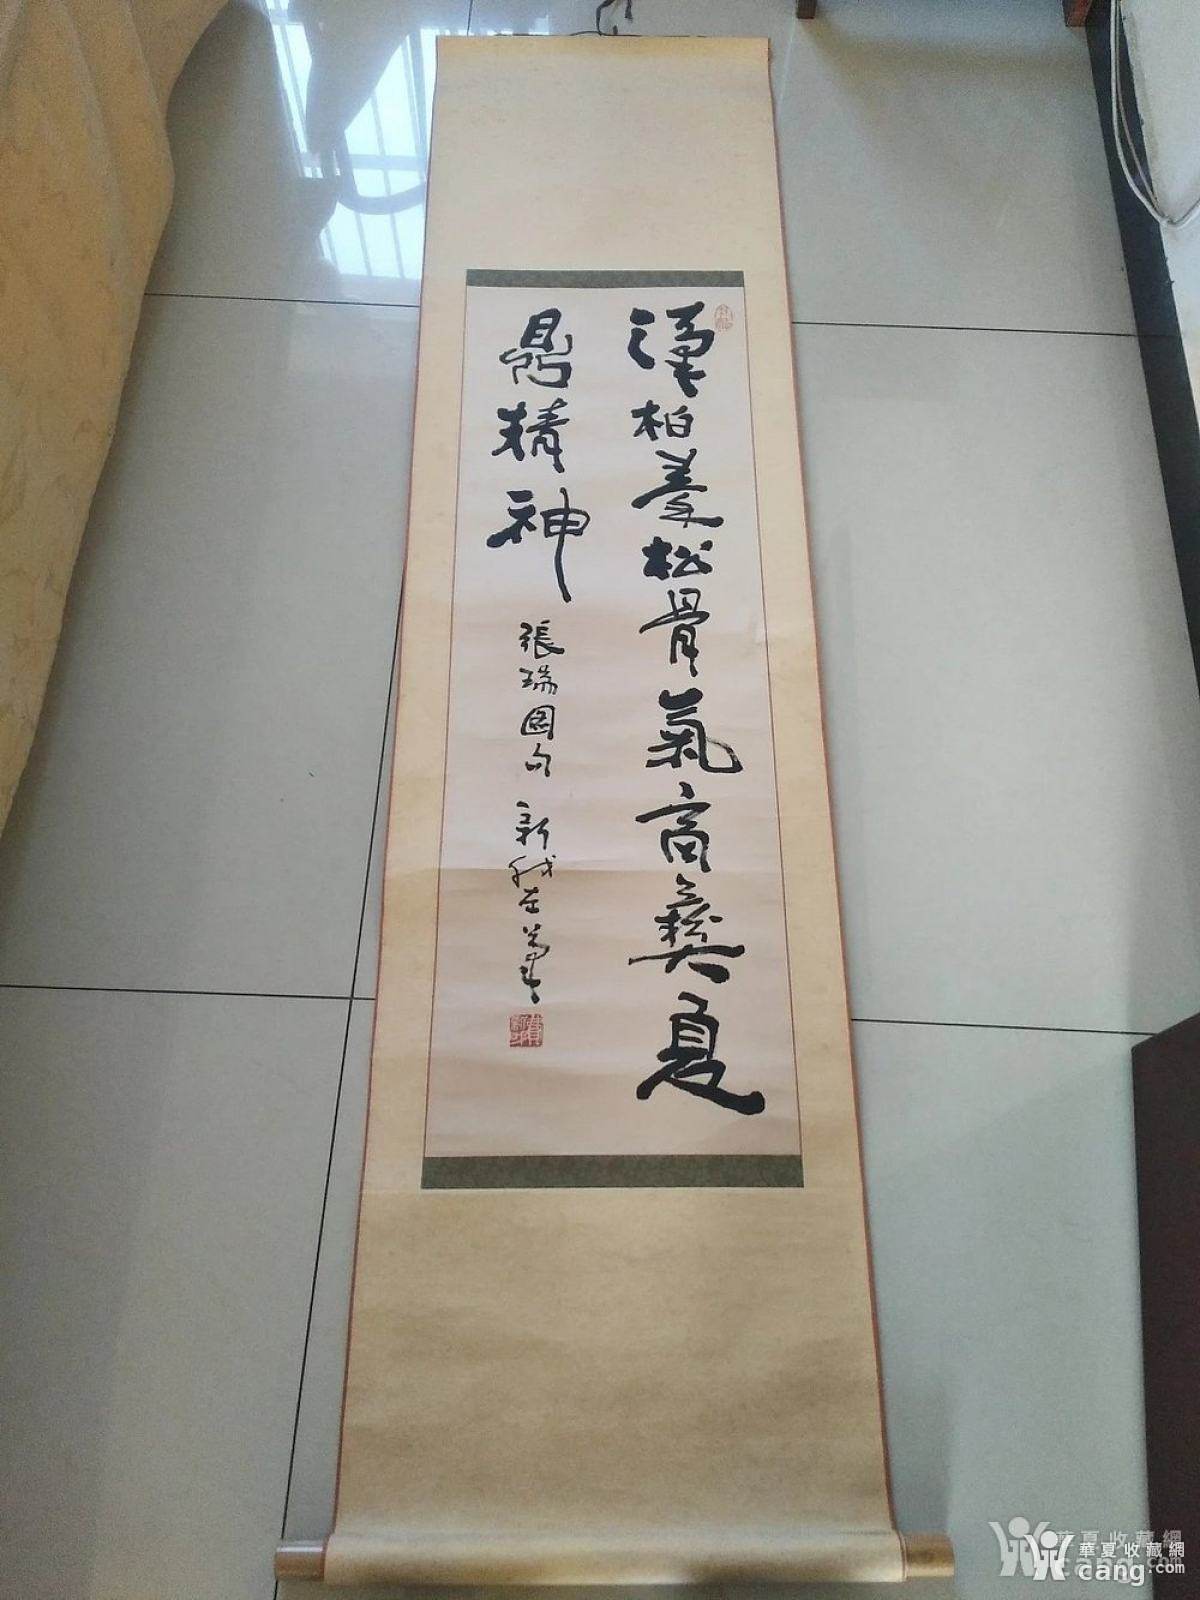 漢柏秦松骨氣商彝夏
鼎精神
張瑞圖句 新我左筆
華夏收藏網
cang.com